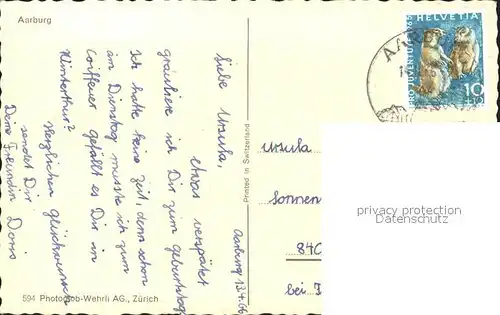 Aarburg
Aarburg 13.4.66
Liebe Ursula,
Etwas verspätet
gratuliere ich Dir zum Geburtstag
Ich hatte keine Zeit, denn schon
am Dienstag musste ich zum
Coiffeur. Gefällt es Dir in
Winterthur?
Herzlichen Glückwunsch
sendet Dir
Deine Freundin Doris
594 Photoglob-Wehrli AG., Zürich
Printed in Switzerland
HELVETIA
PRO JUVENTUTE 1965
10
+10
AARB
Ursula
Sonnen
privacy protection
Datenschutz
840
bei